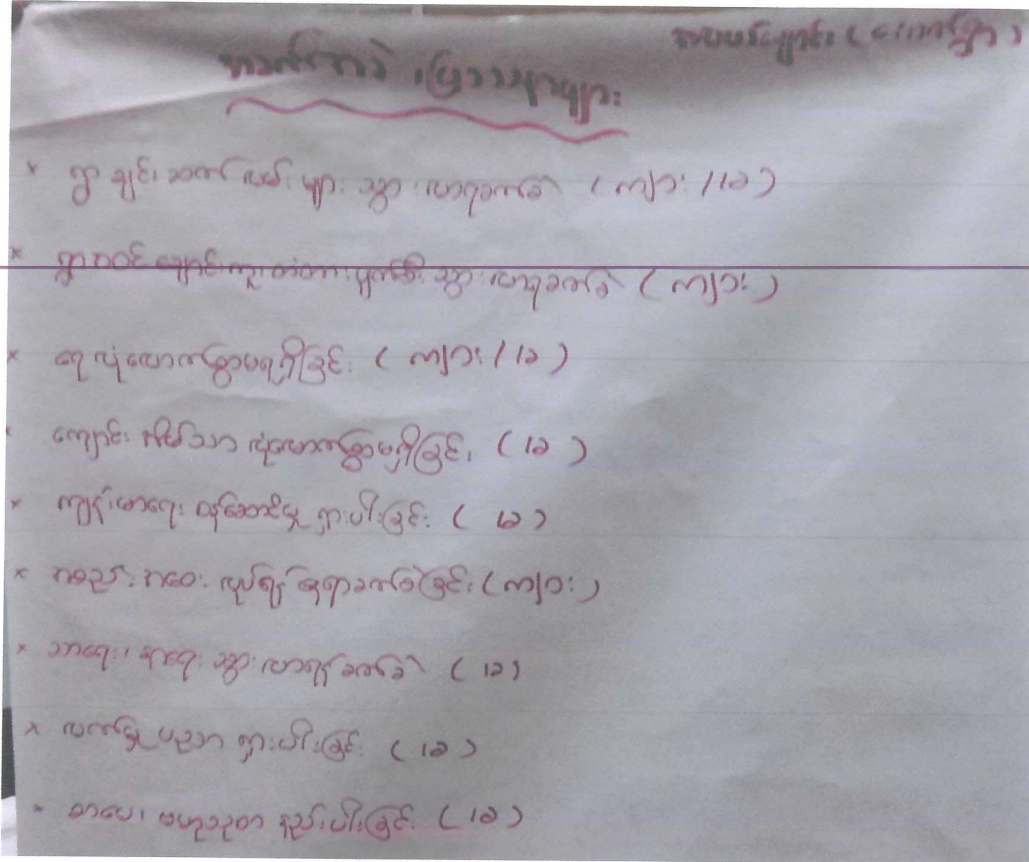 အခက်အခဲ ပြဿနာများ
* ရွာချင်းဆက်လမ်းများ သွားလာရခက်ခဲ (ကျား/မ)
* ရွာအဝင်ချောင်းကူးတံတားပျက်စီး သွားလာရခက်ခဲ (ကျား)
* ရေလုံလောက်စွာမရရှိခြင်း (ကျား/မ)
ကျောင်းအိမ်သာ လုံလောက်စွာမရှိခြင်း (မ)
* ကျန်းမာရေး ဝန်ဆောင်မှု ရှားပါးခြင်း (မ)
* အစည်းအဝေး လုပ်ရန် နေရာခက်ခဲခြင်း (ကျား)
* သာရေး၊ နာရေး သွားလာရန်ခက်ခဲ (မ)
* လက်မှု ပညာ ရှားပါးခြင်း (မ)
* စာပေ၊ ဗဟုသုတ နည်းပါးခြင်း (မ)